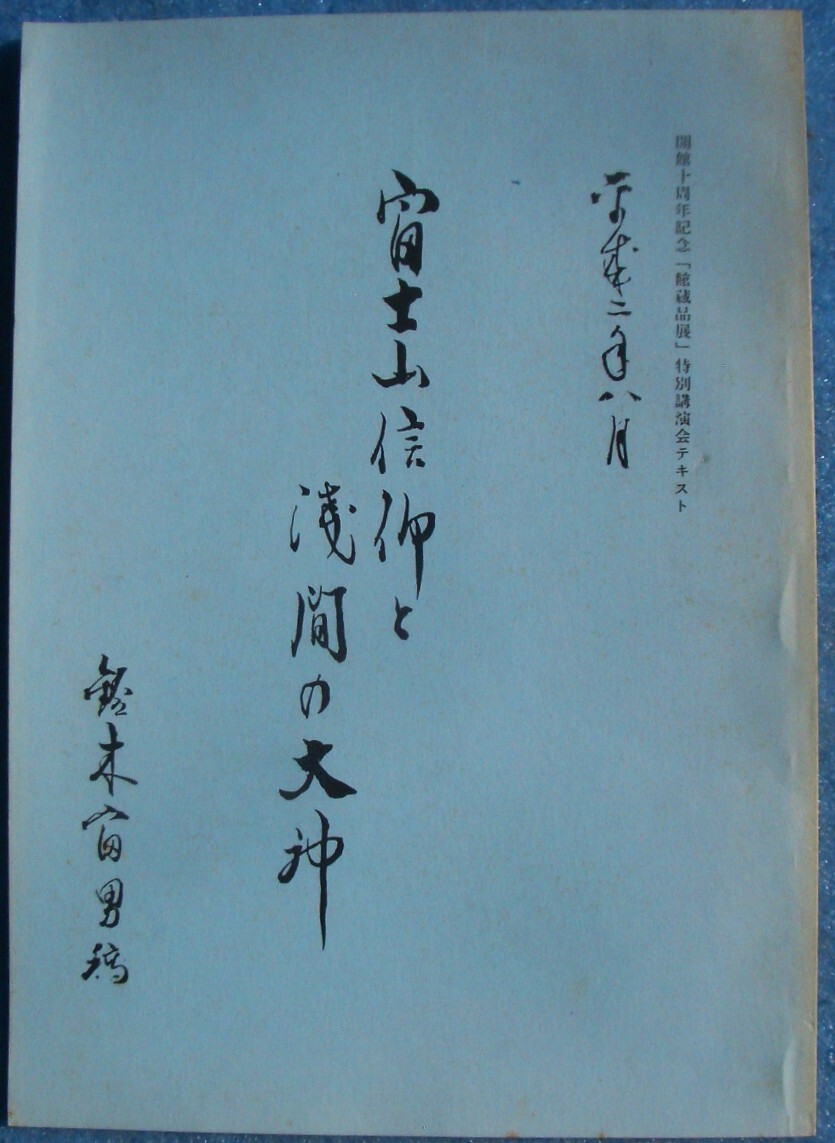 開館十周年記念「館蔵品展」特別講演会テキスト
平成二年八月
富士山信仰と
浅間の大神
鈴木富男稿